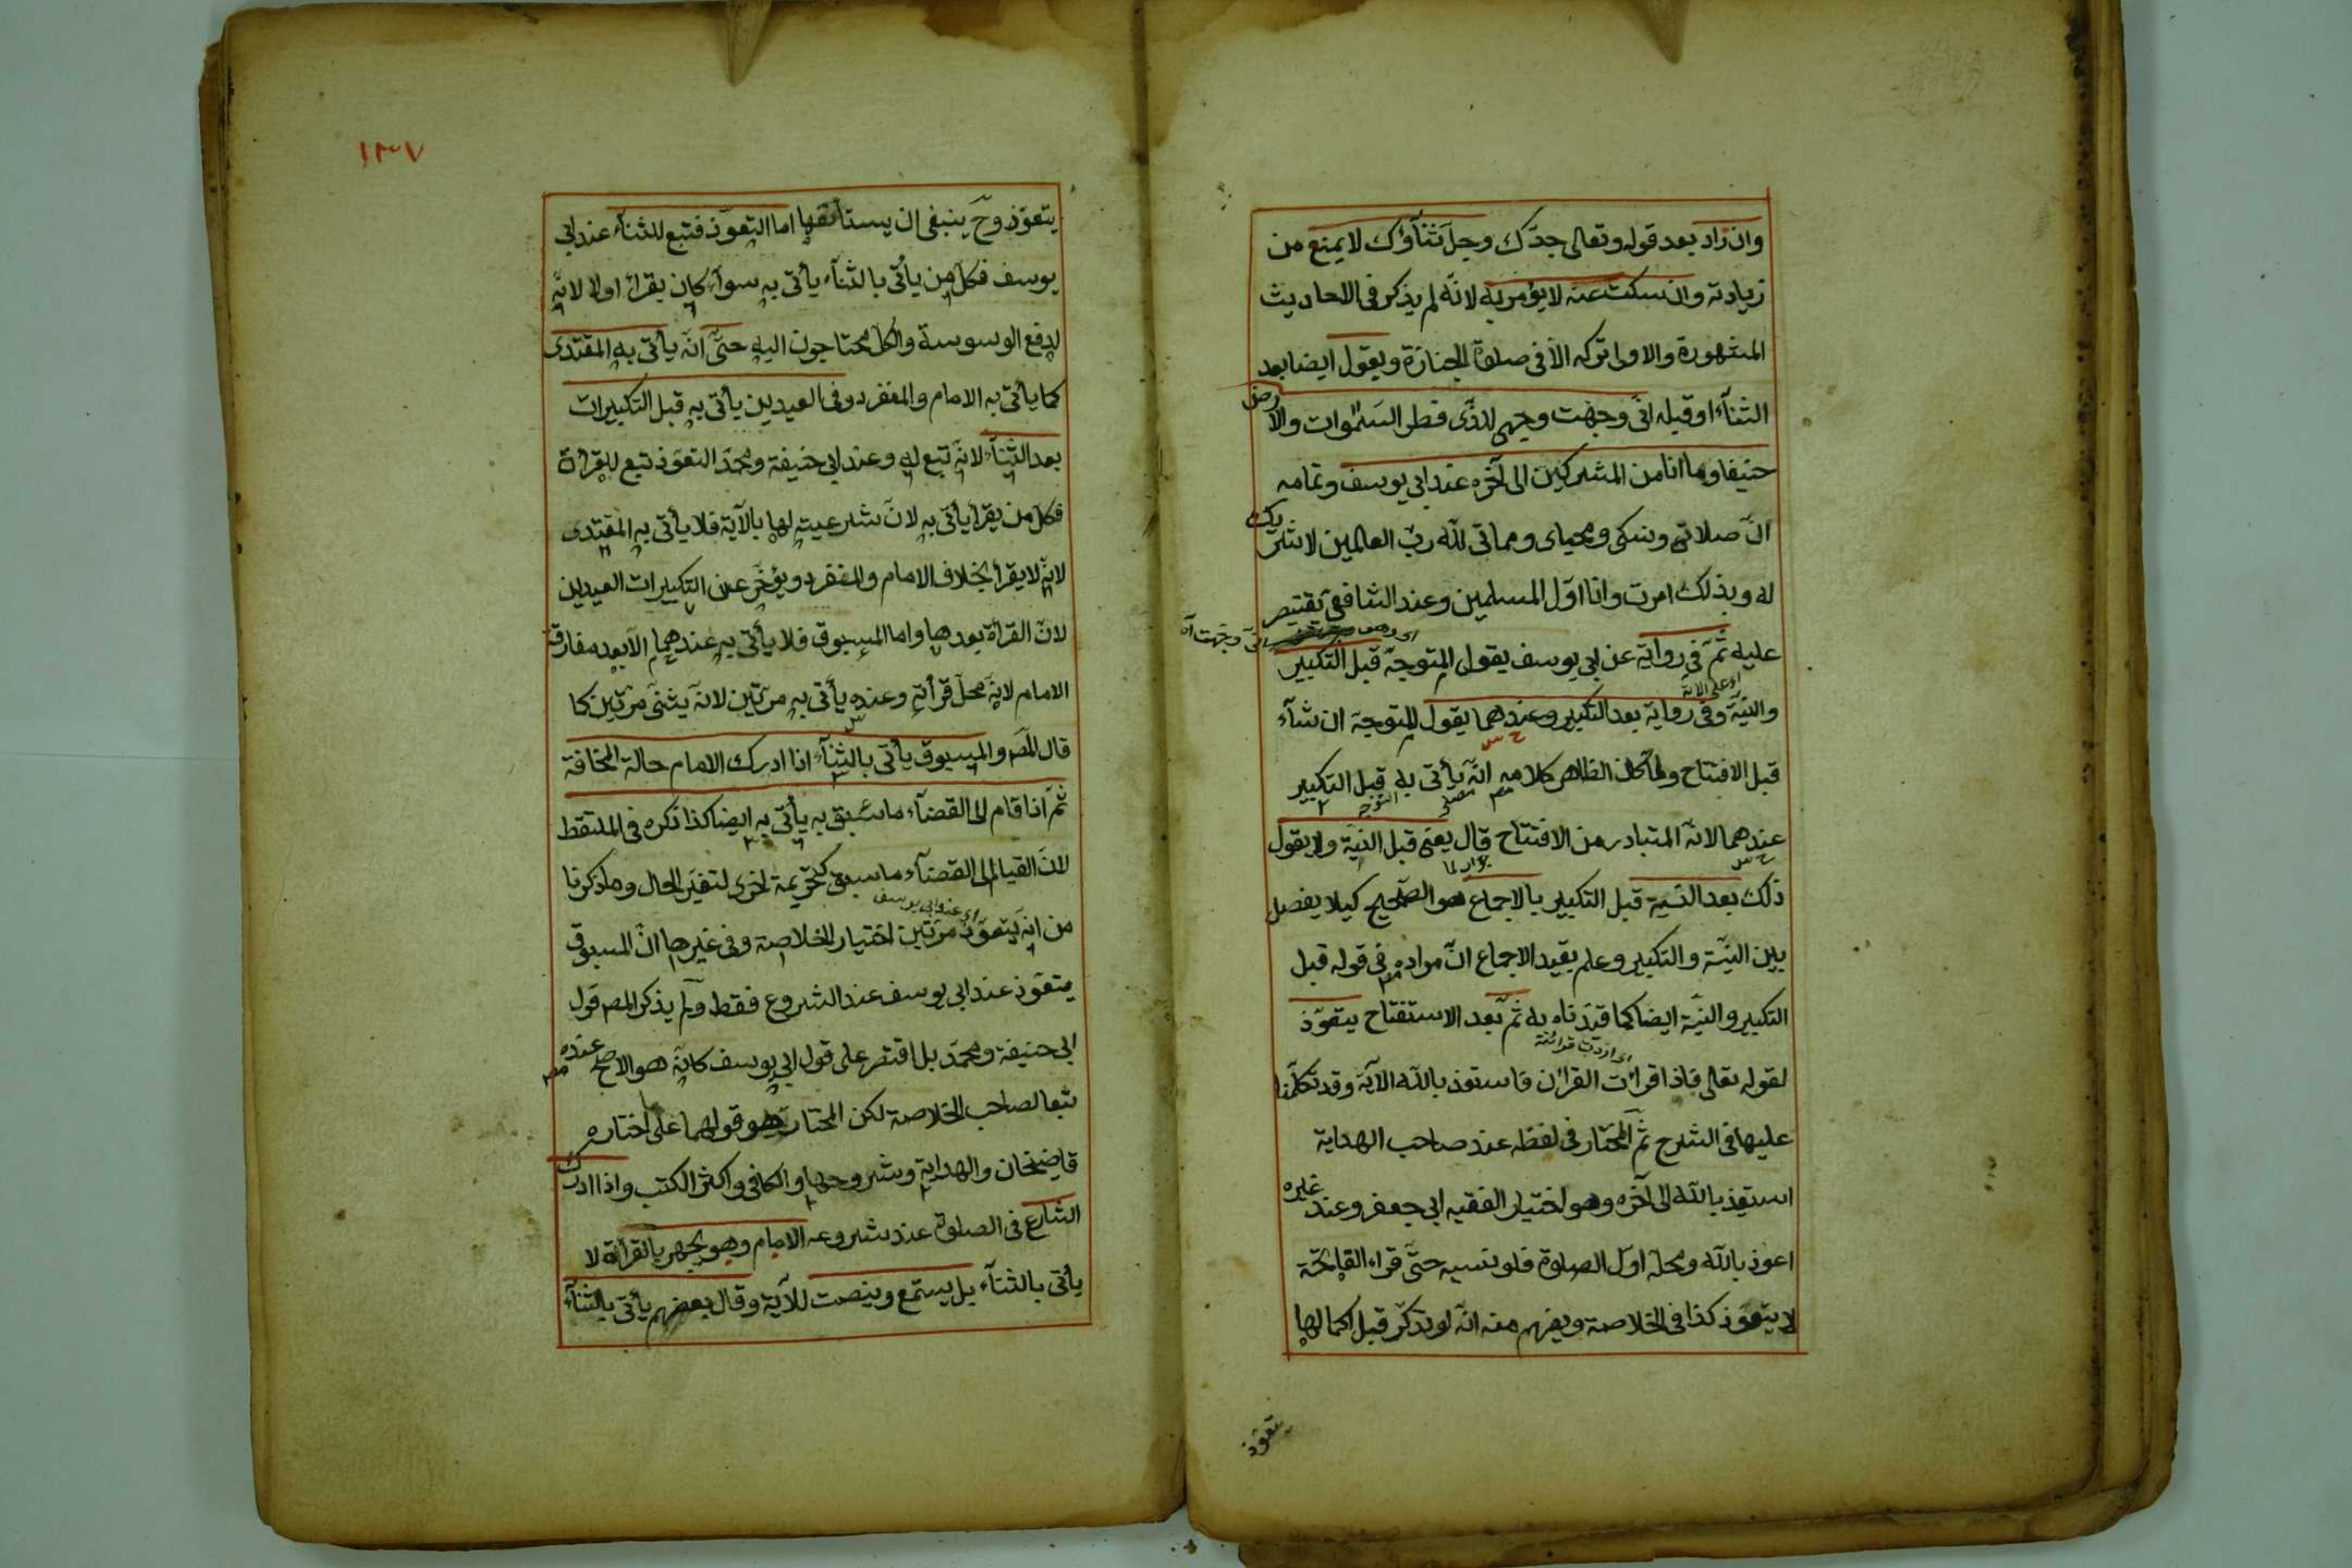 وان زاد بعد قوله وتعالى جدّك وجلّ ثنآؤك لا يمنع من
زيادته وان سكت عنه لا يؤمر به لانّه لم يذكر فى الاحاديث
المشهورة والاولى تركه الّا فى صلوة الجنازة ويقول ايضا بعد
الثنآء او قبله انّى وجّهت وجهى للذّى فطر السّموات والارض
حنيفا وما انا من المشركين الى آخره عند ابى يوسف وتمامه
انّ صلاتى ونسكى ومحياى ومماتى للّه ربّ العالمين لا شريك
له وبذلك امرت وانا اوّل المسلمين وعند الشافعى يقتصر
اى وجهت
انّى وجّهت آه
عليه ثمّ فى رواية عن ابى يوسف يقول المتوجّه قبل التكبير
والنيّة وفى رواية بعد التكبير وعندهما يقول التوجّه ان شآء
قبل الافتتاح ولمّا كان الظاهر كلامه انّه يأتى به قبل التكبير
عندهما لانّه المتبادر من الافتتاح قال يعنى قبل النيّة ولا يقول
ذلك بعد النيّة قبل التكبير بالاجماع هو الصّحيح كيلا يفصل
بين النيّة والتكبير وعلم بقيد الاجماع انّ مراده فى قوله قبل
التكبير والنيّة ايضا كما قيّدناه به ثمّ بعد الاستفتاح يتعوّذ
اى اردت قرائته
لقوله تعالى فاذا قرأت القرأن فاستعذ باللّه الآية وقد تكلّمنا
عليها فى الشرح ثمّ المختار فى لفظه عند صاحب الهداية
استعيذ باللّه الى آخره وهو اختيار الفقيه ابى جعفر وعند غيره
اعوذ باللّه ومحلّه اوّل الصلوة فلو نسيه حتّى قراء الفاتحة
لا يتعوّذ كذا فى الخلاصة ويفهم منه انّه لو تذكّر قبل اكمالها
يتعوّذ
١٣٧
يتعوّذ وح ينبغى ان يستأنفها اما التعوّذ فتبع للثنآء عند ابى
يوسف فكلّ من يأتى بالثنآء يأتى به سوآء كان يقرأ او لا لانّه
لدفع الوسوسة والكلّ محتاجون اليه حتّى انّه يأتى به المقتدى
كما يأتى به الامام والمنفرد وفى العيدين يأتى به قبل التكبيرات
بعد الثّنآء لانّه تبع له وعند ابى حنيفة ومحمّد التعوّذ تبع للقرأة
فكلّ من يقرأ يأتى به لانّ شرعيّته لها بالآية فلا يأتى به المقتدى
لانّه لا يقرأ بخلاف الامام والمنفرد ويؤخّر عن التكبيرات العيدين
لانّ القرأة بعدها واما المسبوق فلا يأتى به عندهما الّا بعد مفارقة
الامام لانّه محلّ قرأته وعنده يأتى به مرّتين لانّه يثنى مرّتين كما
قال المصّ والمسبوق يأتى بالثنآء اذا ادرك الامام حالة المخافة
ثمّ اذا قام الى القضآء ما سبق به يأتى به ايضا كذا ذكره فى الملتقط
لانّ القيام الى القضآء ما سبق كتحريمة اخرى لتغيّر الحال وما ذكرنا
اى عند ابى يوسف
من انّه يتعوّذ مرّتين اختيار الخلاصة وفى غيرها انّ المسبوق
يتعوّذ عند ابى يوسف عند الشروع فقط ولم يذكر المص قول
ابى حنيفة ومحمّد بل اقتصر على قول ابى يوسف كانّه هو الاصحّ عنده
تبعا لصاحب الخلاصة لكن المختار هو قولهما على اختاره
قاضيخان والهداية وشروحها والكافى واكثر الكتب واذا ادرك
الشارع فى الصلوة عند شروعه الامام وهو يجهر بالقرأة لا
يأتى بالثنآء بل يستمع وينصت للآية وقال بعضهم يأتى بالثنآء